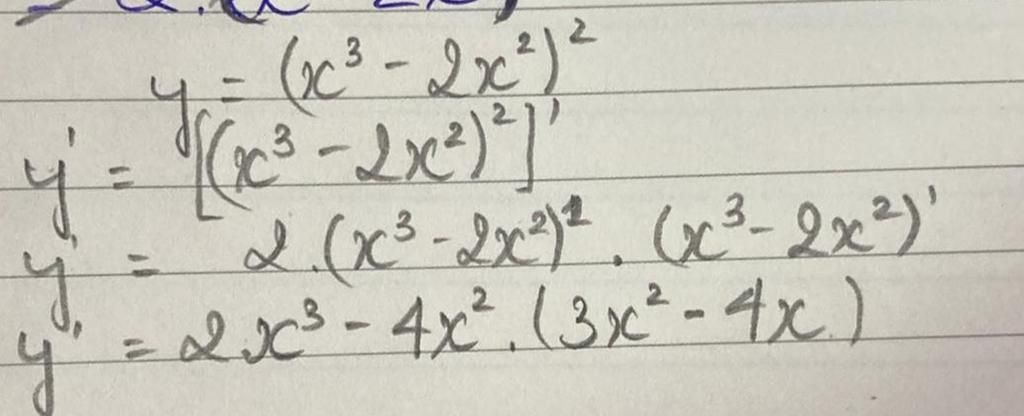 y = (x³ - 2x²)²
y' = [(x³ - 2x²)²]'
y' = 2.(x³ - 2x²)¹ . (x³ - 2x²)'
y' = 2x³ - 4x² . (3x² - 4x)